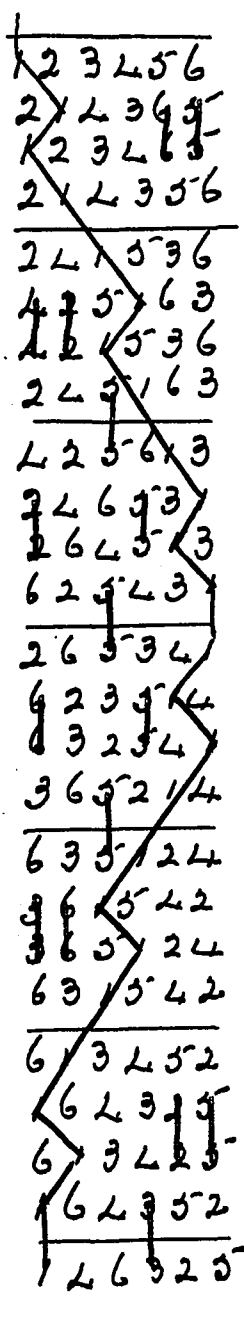 1 2 3 4 5 6
2 1 4 3 6 5
1 2 3 4 6 5
2 1 4 3 5 6
2 4 1 5 3 6
4 2 5 1 6 3
4 2 1 5 3 6
2 4 5 1 6 3
4 2 5 6 1 3
2 4 6 5 3 1
2 6 4 5 1 3
6 2 5 4 3 1
2 6 5 3 4 1
6 2 3 5 1 4
6 3 2 5 4 1
3 6 5 2 1 4
6 3 5 1 2 4
3 6 1 5 4 2
3 6 5 1 2 4
6 3 1 5 4 2
6 1 3 4 5 2
1 6 4 3 2 5
6 1 3 4 2 5
1 6 4 3 5 2
1 4 6 3 2 5